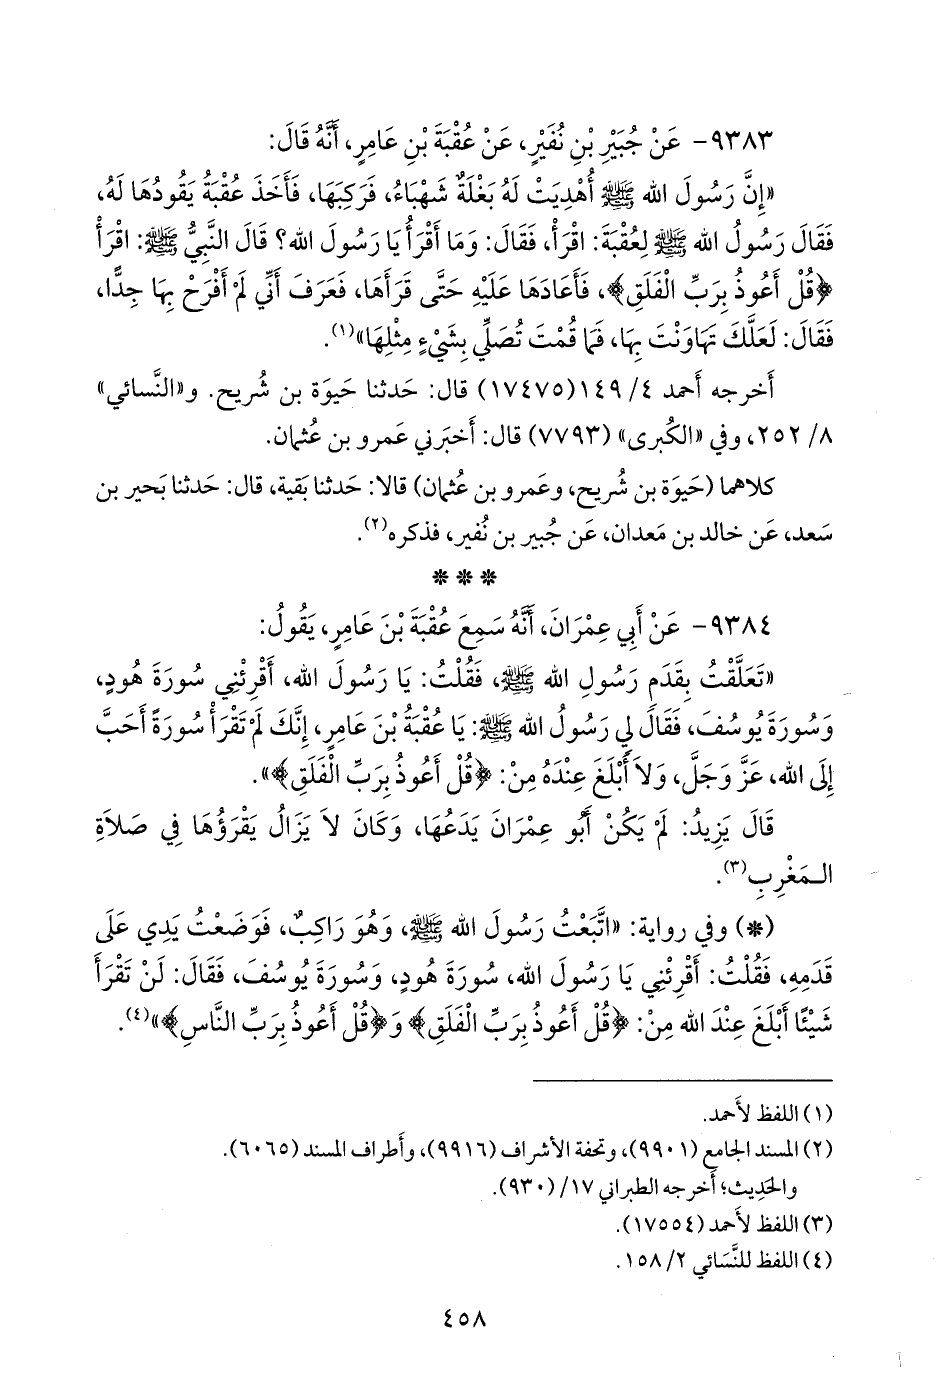 ٩٣٨٣- عَنْ جُبَيْرِ بْنِ نُفَيْرٍ، عَنْ عُقْبَةَ بْنِ عَامِرٍ، أَنَّهُ قَالَ:
«إِنَّ رَسُولَ الله ﷺ أُهْدِيَتْ لَهُ بَغْلَةٌ شَهْبَاءُ، فَرَكِبَهَا، فَأَخَذَ عُقْبَةُ يَقُودُهَا لَهُ،
فَقَالَ رَسُولُ الله ﷺ لِعُقْبَةَ: اقْرَأْ، فَقَالَ: وَمَا أَقْرَأُ يَا رَسُولَ الله؟ قَالَ النَّبِيُّ ﷺ: اقْرَأْ
﴿قُلْ أَعُوذُ بِرَبِّ الْفَلَقِ﴾، فَأَعَادَهَا عَلَيْهِ حَتَّى قَرَأَهَا، فَعَرَفَ أَنِّي لَمْ أَفْرَحْ بِهَا جِدًّا،
فَقَالَ: لَعَلَّكَ تَهَاوَنْتَ بِهَا، فَمَا قُمْتَ تُصَلِّي بِشَيْءٍ مِثْلِهَا»(١).
أَخرجه أَحمد ٤/ ١٤٩(١٧٤٧٥) قال: حَدثنا حَيوَة بن شُريح. و«النَّسائي»
٨/ ٢٥٢، وفي «الكُبرى» (٧٧٩٣) قال: أَخبَرني عَمرو بن عُثمان.
كلاهما (حَيوَة بن شُريح، وعَمرو بن عُثمان) قالا: حَدثنا بَقية، قال: حَدثنا بَحير بن
سَعد، عَن خالد بن مَعدان، عَن جُبير بن نُفير، فذكره(٢).
* * *
٩٣٨٤- عَنْ أَبِي عِمْرَانَ، أَنَّهُ سَمِعَ عُقْبَةَ بْنَ عَامِرٍ، يَقُولُ:
«تَعَلَّقْتُ بِقَدَمِ رَسُولِ الله ﷺ، فَقُلْتُ: يَا رَسُولَ الله، أَقْرِئْنِي سُورَةَ هُودٍ،
وَسُورَةَ يُوسُفَ، فَقَالَ لِي رَسُولُ الله ﷺ: يَا عُقْبَةُ بْنَ عَامِرٍ، إِنَّكَ لَمْ تَقْرَأْ سُورَةً أَحَبَّ
إِلَى الله، عَزَّ وَجَلَّ، وَلاَ أَبْلَغَ عِنْدَهُ مِنْ: ﴿قُلْ أَعُوذُ بِرَبِّ الْفَلَقِ﴾».
قَالَ يَزِيدُ: لَمْ يَكُنْ أَبُو عِمْرَانَ يَدَعُهَا، وَكَانَ لاَ يَزَالُ يَقْرَؤُهَا فِي صَلاَةِ
الـمَغْرِبِ(٣).
(*) وفي رواية: «اتَّبَعْتُ رَسُولَ الله ﷺ، وَهُوَ رَاكِبٌ، فَوَضَعْتُ يَدِي عَلَى
قَدَمِهِ، فَقُلْتُ: أَقْرِئْنِي يَا رَسُولَ الله، سُورَةَ هُودٍ، وَسُورَةَ يُوسُفَ، فَقَالَ: لَنْ تَقْرَأَ
شَيْئًا أَبْلَغَ عِنْدَ الله مِنْ: ﴿قُلْ أَعُوذُ بِرَبِّ الْفَلَقِ﴾ وَ﴿قُلْ أَعُوذُ بِرَبِّ النَّاسِ﴾»(٤).
(١) اللفظ لأَحمد.
(٢) المسند الجامع (٩٩٠١)، وتحفة الأشراف (٩٩١٦)، وأَطراف المسند (٦٠٦٥).
والحَدِيث؛ أَخرجه الطبراني ١٧/ (٩٣٠).
(٣) اللفظ لأَحمد (١٧٥٥٤).
(٤) اللفظ للنَّسَائي ٢/ ١٥٨.
٤٥٨